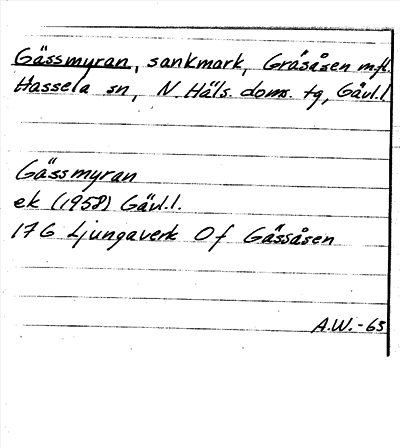 Gässmyran, sankmark, Gråsåsen m.fl.
Hassela sn, N. Häls. doms. tg, Gävl.l.
Gässmyran
ek (1958) Gävl.l.
17G Ljungaverk Of Gässåsen
A.W.-63